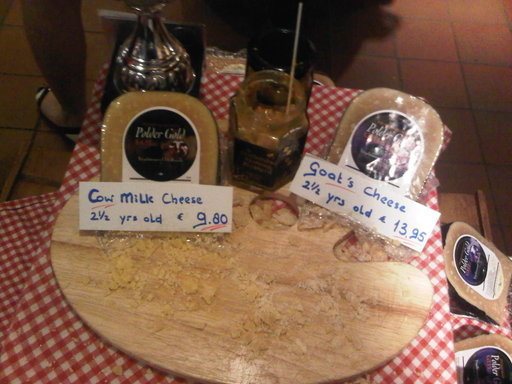 Polder Gold
Cow Milk Cheese
2½ yrs old € 9.80
Polder Gold
Goat's Cheese
2½ yrs old € 13.95
Polder Gold
Polder Gold